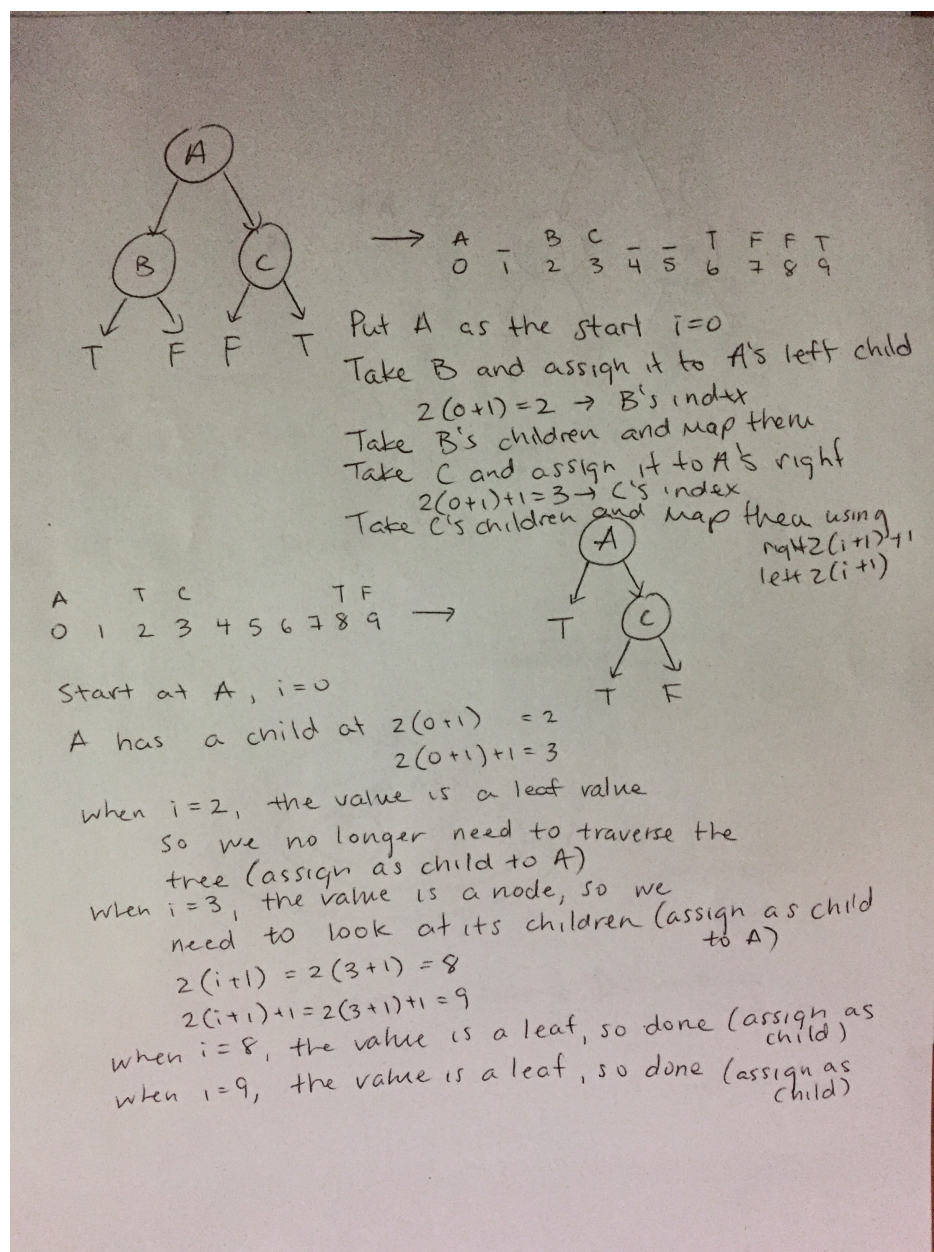 A
B C
T F F T
→ A _ B C _ _ T F F T
0 1 2 3 4 5 6 7 8 9
Put A as the start i=0
Take B and assign it to A's left child
2(0+1)=2 → B's index
Take B's children and map them
Take C and assign it to A's right
2(0+1)+1=3→ C's index
Take C's children and map them using
right 2(i+1)+1
left 2(i+1)
A T C T F
0 1 2 3 4 5 6 7 8 9 →
A
T C
T F
Start at A, i=0
A has a child at 2(0+1) = 2
2(0+1)+1=3
when i=2, the value is a leaf value
so we no longer need to traverse the
tree (assign as child to A)
when i=3, the value is a node, so we
need to look at its children (assign as child
to A)
2(i+1) = 2(3+1) = 8
2(i+1)+1=2(3+1)+1=9
when i=8, the value is a leaf, so done (assign as
child)
when i=9, the value is a leaf, so done (assign as
child)